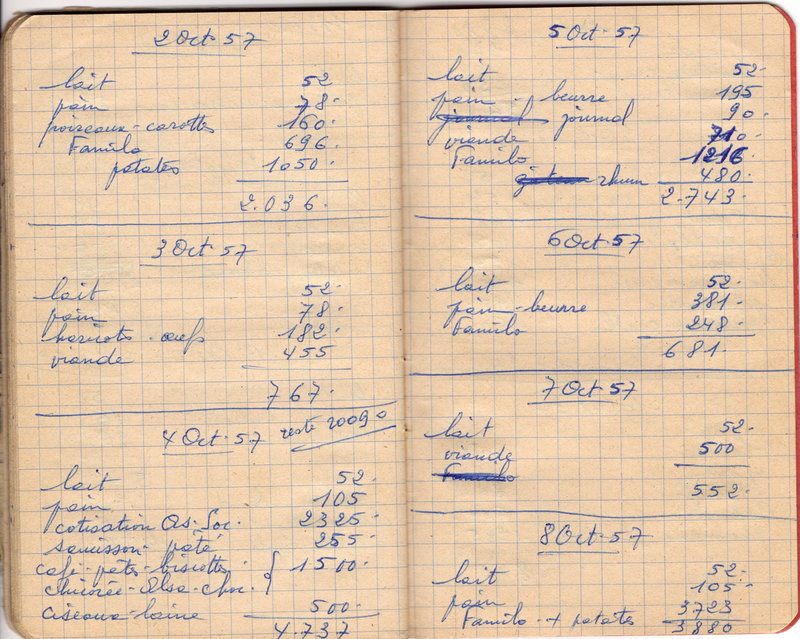 2 Oct. 57
lait 52
pain 78.
poireaux - carottes 160.
Familo 696.
patates 1050.
2.036.
3 Oct. 57
lait 52.
pain 78.
haricots - oeufs 182.
viande 455
767.
4 Oct. 57 reste 20090
lait 52.
pain 105
cotisation As. Soc. 2325.
saucisson - paté 255
café - pâtes - biscottes - 1500.
chicorée - Alsa - choc.
ciseaux - laine 500.
4.737
5 Oct. 57
lait 52.
pain - beurre 195
journal journal 90.
viande 710.
Familo 1216
rhum 480.
2.743.
6 Oct. 57
lait 52.
pain - beurre 381.
Familo 248.
681.
7 Oct. 57
lait 52.
viande 500
Familo
552.
8 Oct. 57
lait 52.
pain 105.
Familo + patates 3723
3880